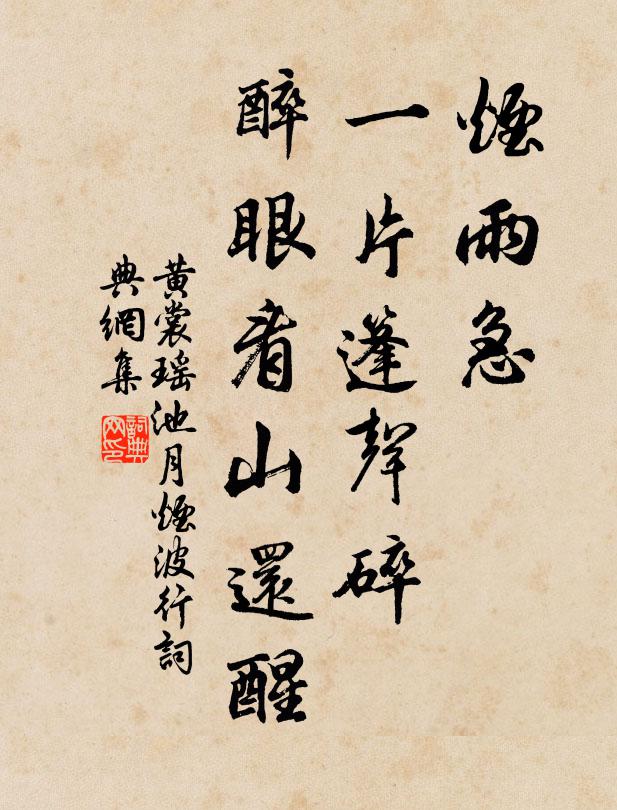 煙雨急
一片篷聲碎
醉眼看山還醒
黃裳瑤池月煙波行詞
典網集
詞典
网印